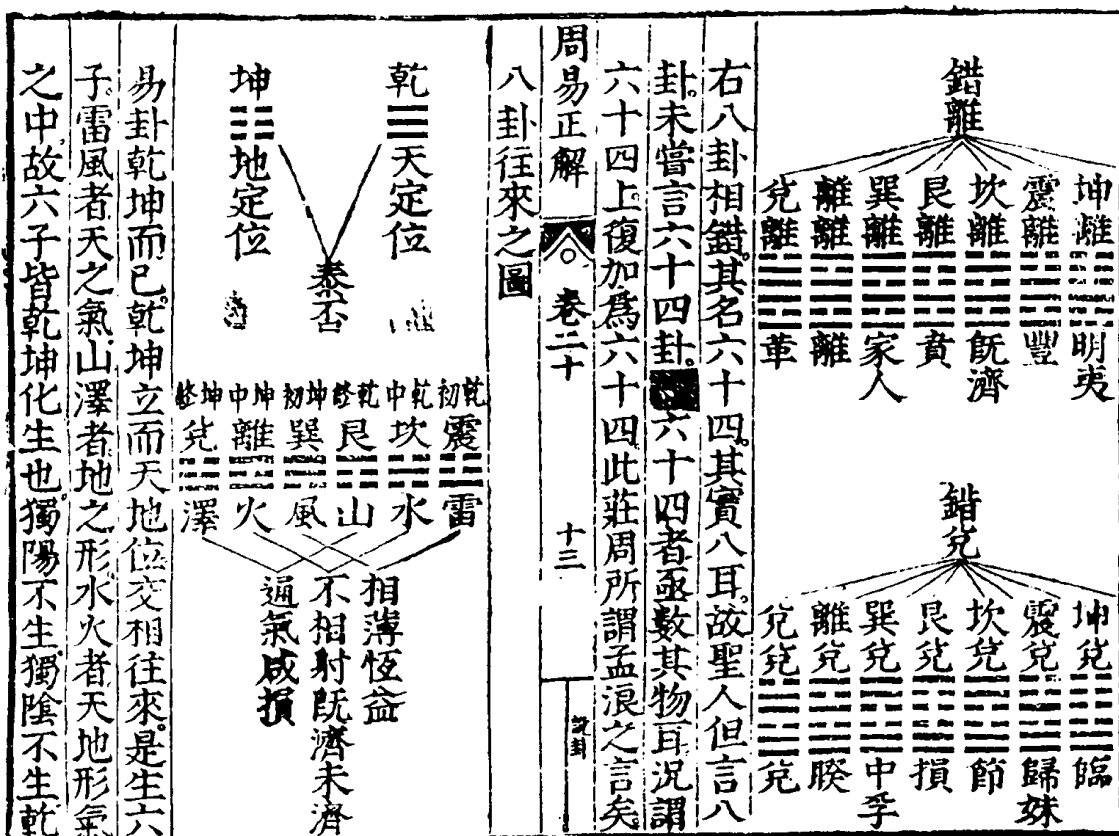 錯離
坤離 明夷
震離 豐
坎離 既濟
艮離 賁
巽離 家人
離離 離
兌離 革
錯兌
坤兌 臨
震兌 歸妹
坎兌 節
艮兌 損
巽兌 中孚
離兌 睽
兌兌 兌
右八卦相錯其名六十四其實八耳故聖人但言八
卦未嘗言六十四卦六十四者亟數其物耳況謂
六十四上復加爲六十四此莊周所謂孟浪之言矣
周易正解 卷二十 十三 說卦
八卦往來之圖
乾☰天定位
坤☷地定位
泰否
乾初 震☳雷
乾中 坎☵水
乾終 艮☶山
坤初 巽☴風
坤中 離☲火
坤終 兌☱澤
相薄恆益
不相射既濟未濟
通氣咸損
易卦乾坤而已乾坤立而天地位交相往來是生六
子雷風者天之氣山澤者地之形水火者天地形氣
之中故六子皆乾坤化生也獨陽不生獨陰不生乾